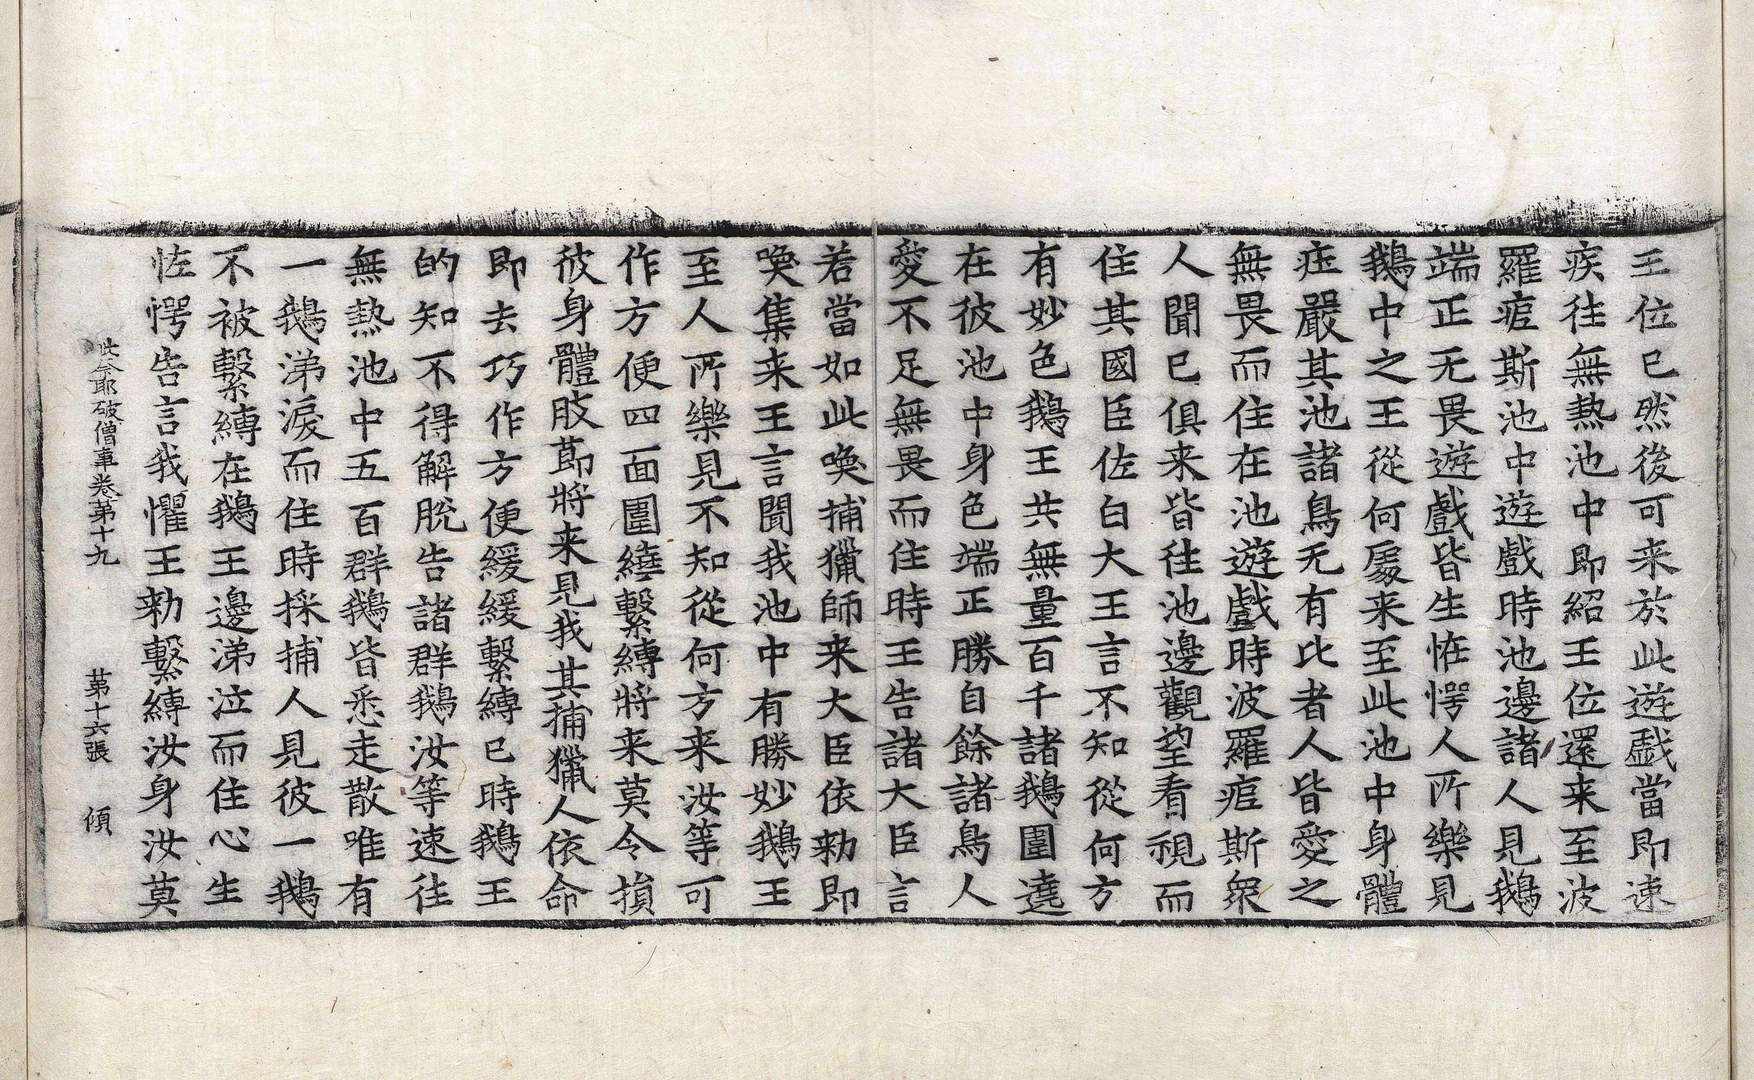 王位已然後可来於此遊戱當即速
疾往無熱池中即紹王位還来至波
羅痆斯池中遊戱時池邊諸人見鵝
端正无畏遊戱皆生恠愕人所樂見
鵝中之王從何處来至此池中身體
庄嚴其池諸鳥无有比者人皆愛之
無畏而住在池遊戱時波羅痆斯衆
人聞已俱来皆往池邊觀望看視而
住其國臣佐白大王言不知從何方
有妙色鵝王共無量百千諸鵝圍遶
在彼池中身色端正勝自餘諸鳥人
愛不足無畏而住時王告諸大臣言
若當如此喚捕獵師来大臣依勑即
喚集来王言聞我池中有勝妙鵝王
至人所樂見不知從何方来汝等可
作方便四面圍繞繫縛將来莫令損
彼身體肢莭將来見我其捕獵人依命
即去巧作方便緩緩繫縛已時鵝王
的知不得解脫告諸群鵝汝等速往
無熱池中五百群鵝皆悉走散唯有
一鵝涕淚而住時採捕人見彼一鵝
不被繫縛在鵝王邊涕泣而住心生
恠愕告言我懼王勑繫縛汝身汝莫
毗奈耶破僧事卷第十九 第十六張 傾